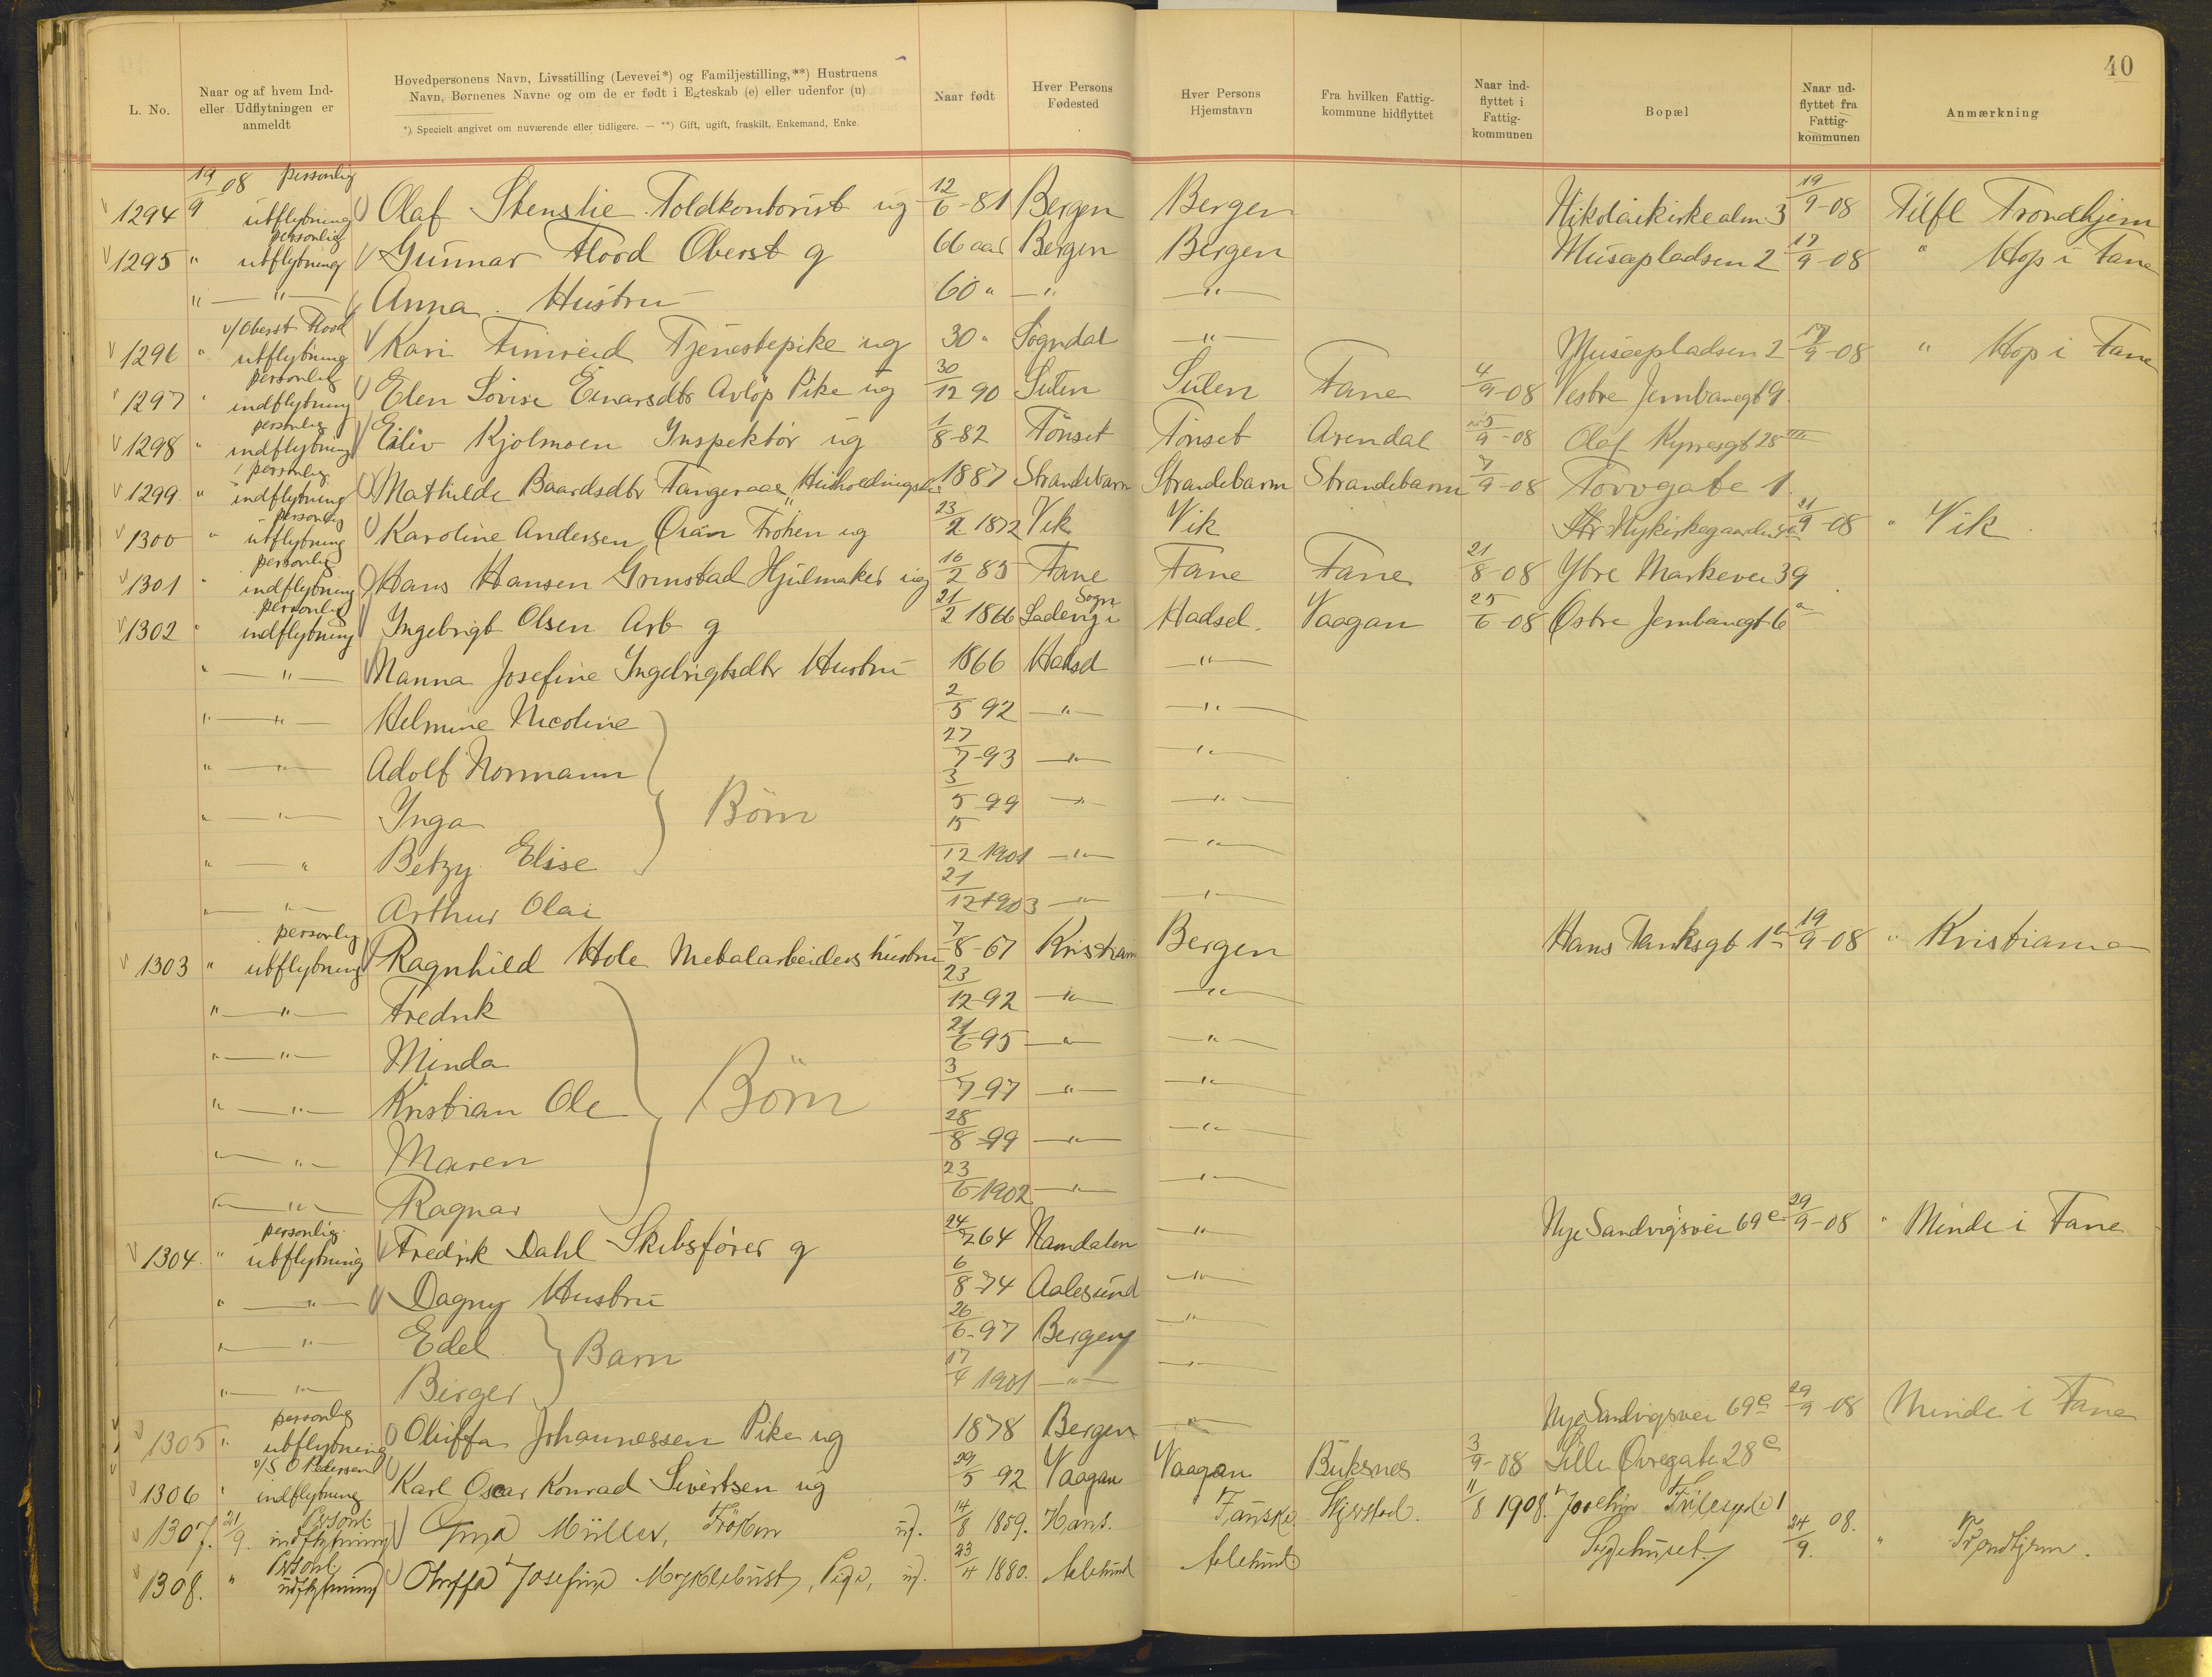 40
L. No. Naar og af hvem Ind- eller Udflytningen er anmeldt Hovedpersonens Navn, Livsstilling (Levevei*) og Familjestilling,**) Hustruens Navn, Børnenes Navne og om de er født i Egteskab (e) eller udenfor (u) Naar født Hver Persons Fødested Hver Persons Hjemstavn Fra hvilken Fattigkommune hidflyttet Naar indflyttet i Fattigkommunen Bopæl Naar udflyttet fra Fattigkommunen Anmærkning
*) Specielt angivet om nuværende eller tidligere. — **) Gift, ugift, fraskilt, Enkemand, Enke.
1294 19/9 08 personlig utflytning Olaf Stenslie Toldkontorist ug 12/6-81 Bergen Bergen Nikolaikirkealm 3 19/9-08 Tilfl Trondhjem
1295 " personlig utflytning Gunnar Flood Oberst g 66 aar Bergen Bergen Musæpladsen 2 17/9-08 " Hop i Fane
" — " — Anna. Hustru 60 " — " — " —
1296 " v/Oberst Flood utflytning Kari Timreid Tjenestepike ug 30 " Sogndal — " — Musæpladsen 2 17/9-08 " Hop i Fane
1297 " personlig indflytning Elen Lovise Einarsdtr Avløp Pike ug 30/12 90 Sulen Sulen Fane 4/9-08 Vestre Jernbanegt 9
1298 " personlig indflytning Eiliv Kjølmoen Inspektør ug 1/8-82 Tönset Tönset Arendal 15/9-08 Olaf Kyrresgt 28 III
1299 " personlig indflytning Mathilde Baardsdtr Tangeraas, Husholdingsk. 1887 Strandebarm Strandebarm Strandebarm 7/9-08 Torvgate 1
1300 " personlig utflytning Karoline Andersen Frøken ug 23/2 1872 Vik Vik Nykirkegaarden 21/9-08 " Vik
1301 " personlig indflytning Hans Hansen Grimstad Hjulmaker ug 16/2 85 Fane Fane Fane 21/8-08 Ytre Markevei 39
1302 " personlig indflytning Ingebrigt Olsen Arb g 21/2 1866 Ladevig i Sogn Hadsel. Vaagan 25/6-08 Østre Jernbanegt 6 a
" — " — Nanna Josefine Ingebrigtsdtr Hustru 1866 Hadsel — " —
" — " — Helmine Nicoline 2/5 92 — " — " —
" — " — Adolf Normann 27/7-93 — " — " —
" — " — Inga Börn 3/5 99 — " — " —
" — " Betzy Elise 15/12 1901 — " — " —
" — " — Arthur Olai 21/12 1903 — " — " —
1303 " personlig utflytning Ragnhild Hole Metalarbeiders hustru 7/8-67 Kristiania Bergen Hans Tanksgt 1 a 19/9-08 " Kristiania
" — " — Fredrik 23/12-92 — " — " —
" — " — Minda 21/6-95 — " — " —
" — " — Kristian Ole Börn 3/7 97 — " — " —
" — " — Maren 28/8-99 — " — " —
" — " — Ragnar 23/6 1902 — " — " —
1304. " personlig utflytning Fredrik Dahl Skibsfører g 24/7 64 Namdalen — " — Nye Sandvigsvei 69 c 29/9-08 " Minde i Fane
" — " — Dagny Hustru 6/8-74 Aalesund — " —
" — " — Edel Barn 26/6-97 Bergen — " —
" — " — Birger 17/4 1901 — " — " —
1305 " personlig utflytning Oluffa Johannessen Pike ug 1878 Bergen — " — Nye Sandvigsvei 69 c 29/9-08 Minde i Fane
1306 " v/S O Pedersen indflytning Karl Oscar Konrad Sivertsen ug 29/5 92 Vaagan Vaagan Buksnes 3/9-08 Lille Øvregate 28 c
1307. 21/9. Personl. indflytning Müller, Fröken ug. 14/8 1859. Hans. Fauske. Skjerstad. 11/8 1908.
1308. " Personl. udflytning Oluffa Josefine Myklebust, Pige, ug. 23/4 1880. Aalesund Aalesund Sygehuset. 24/9. 08. " Trondhjem.